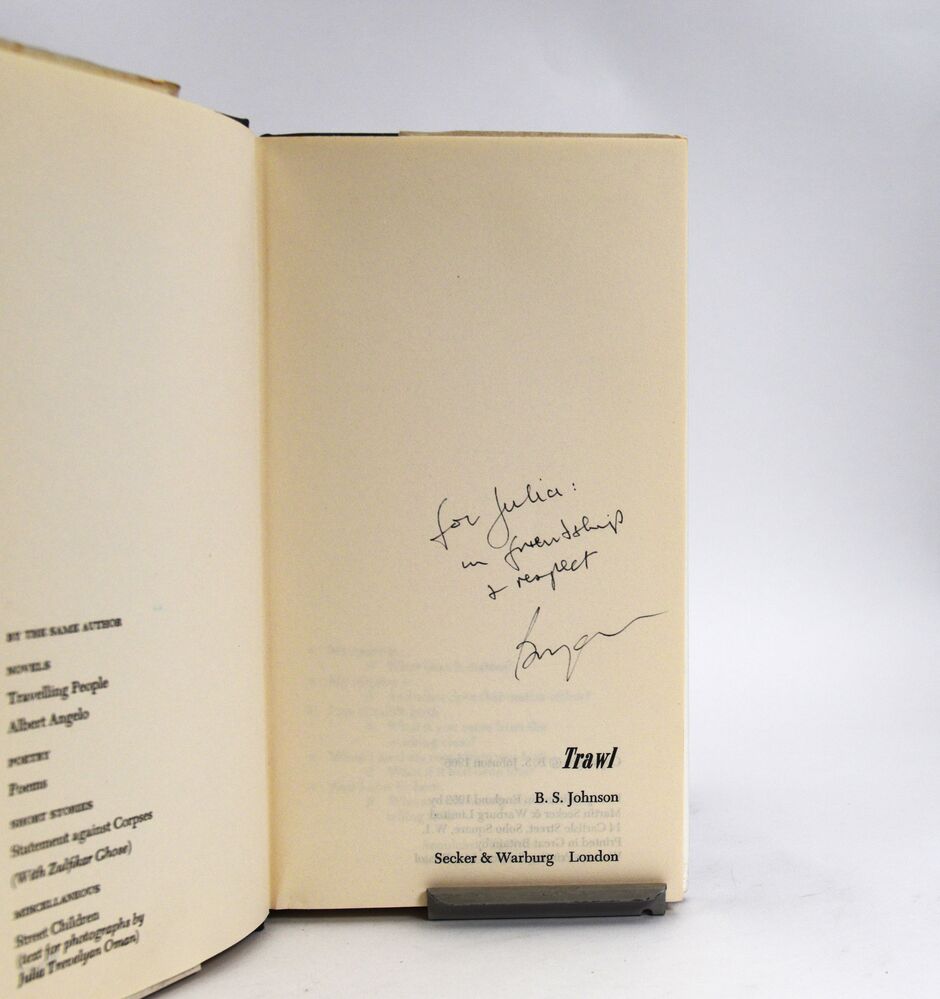 BY THE SAME AUTHOR
NOVELS
Travelling People
Albert Angelo
POETRY
Poems
SHORT STORIES
Statement against Corpses
(With Zulfikar Ghose)
MISCELLANEOUS
Street Children
(text for photographs by
Julia Trevelyan Oman)
for Julia:
in friendship
& respect
Bryan
Trawl
B. S. Johnson
Secker & Warburg London